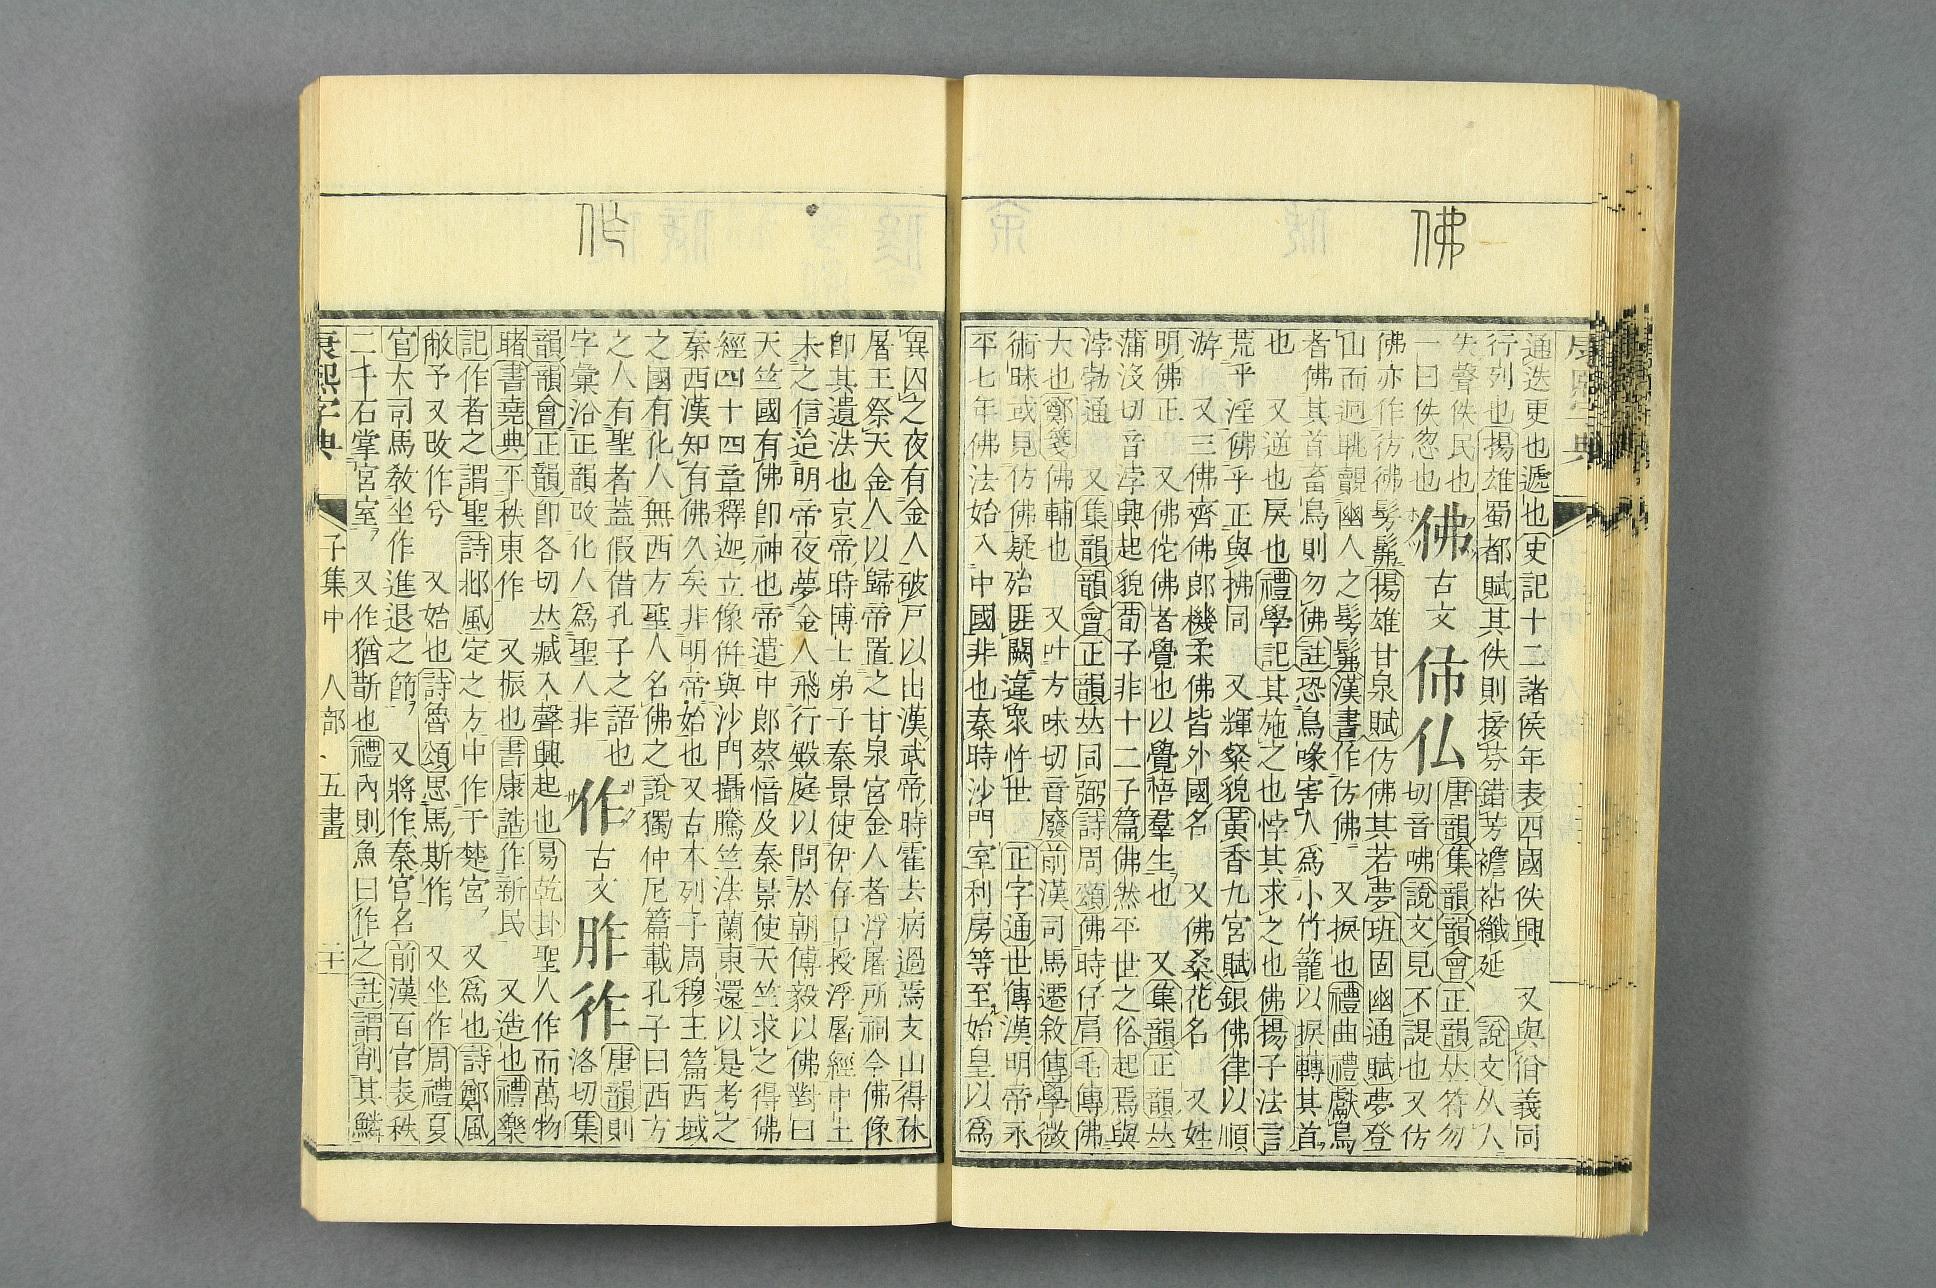 佛
通迭更也遞也史記十二諸侯年表四國佚興 又與佾義同
行列也揚雄蜀都賦其佚則接芬錯芳襜袩纖延 說文从人
失聲佚民也
一曰佚忽也
佛 古文 㑉 仏
唐韻集韻韻會正韻𠀤符勿
切音咈說文見不諟也又仿
佛亦作彷彿髣髴揚雄甘泉賦仿佛其若夢班固幽通賦夢登
山而迥眺覿幽人之髣髴漢書作仿佛 又捩也禮曲禮獻鳥
者佛其首畜鳥則勿佛註恐鳥喙害人爲小竹籠以捩轉其首
也 又逆也戾也禮學記其施之也悖其求之也佛揚子法言
荒乎淫佛乎正與拂同 又輝粲貌黃香九宮賦銀佛律以順
游 又三佛齊佛郎機柔佛皆外國名 又佛桑花名 又姓
明佛正 又佛佗佛者覺也以覺悟羣生也 又集韻正韻𠀤
蒲沒切音浡興起貌荀子非十二子篇佛然平世之俗起焉與
浡勃通 又集韻韻會正韻𠀤同弼詩周頌佛時仔肩毛傳佛
大也鄭箋佛輔也 又叶方味切音廢前漢司馬遷敘傳學微
術昧或見仿佛疑殆匪闕違衆忤世 正字通世傳漢明帝永
平七年佛法始入中國非也秦時沙門室利房等至始皇以爲
異囚之夜有金人破戸以出漢武帝時霍去病過焉支山得休
屠王祭天金人以歸帝置之甘泉宮金人者浮屠所祠今佛像
卽其遺法也哀帝時博士弟子秦景使伊存口授浮屠經中土
未之信迨明帝夜夢金人飛行殿庭以問於朝傅毅以佛對曰
天竺國有佛卽神也帝遣中郎蔡愔及秦景使天竺求之得佛
經四十四章釋迦立像倂與沙門攝騰竺法蘭東還以是考之
秦西漢知有佛久矣非明帝始也又古本列子周穆王篇西域
之國有化人無西方聖人名佛之說獨仲尼篇載孔子曰西方
之人有聖者蓋假借孔子之語也
字彙沿正韻改化人爲聖人非
作 古文 胙 㣅
唐韻則
洛切集
韻韻會正韻卽各切𠀤臧入聲興起也易乾卦聖人作而萬物
睹書堯典平秩東作 又振也書康誥作新民 又造也禮樂
記作者之謂聖詩鄘風定之方中作于楚宮 又爲也詩鄭風
敝予又改作兮 又始也詩魯頌思馬斯作 又坐作周禮夏
官大司馬敎坐作進退之節 又將作秦官名前漢百官表秩
二千石掌宮室 又作猶斮也禮內則魚曰作之註謂削其鱗
康熙字典 子集中 人部 五畫 二十